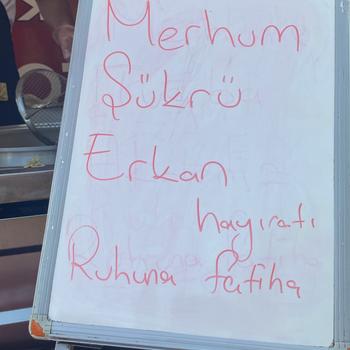 Merhum
Şükrü
Erkan
hayıratı
Ruhuna fatiha